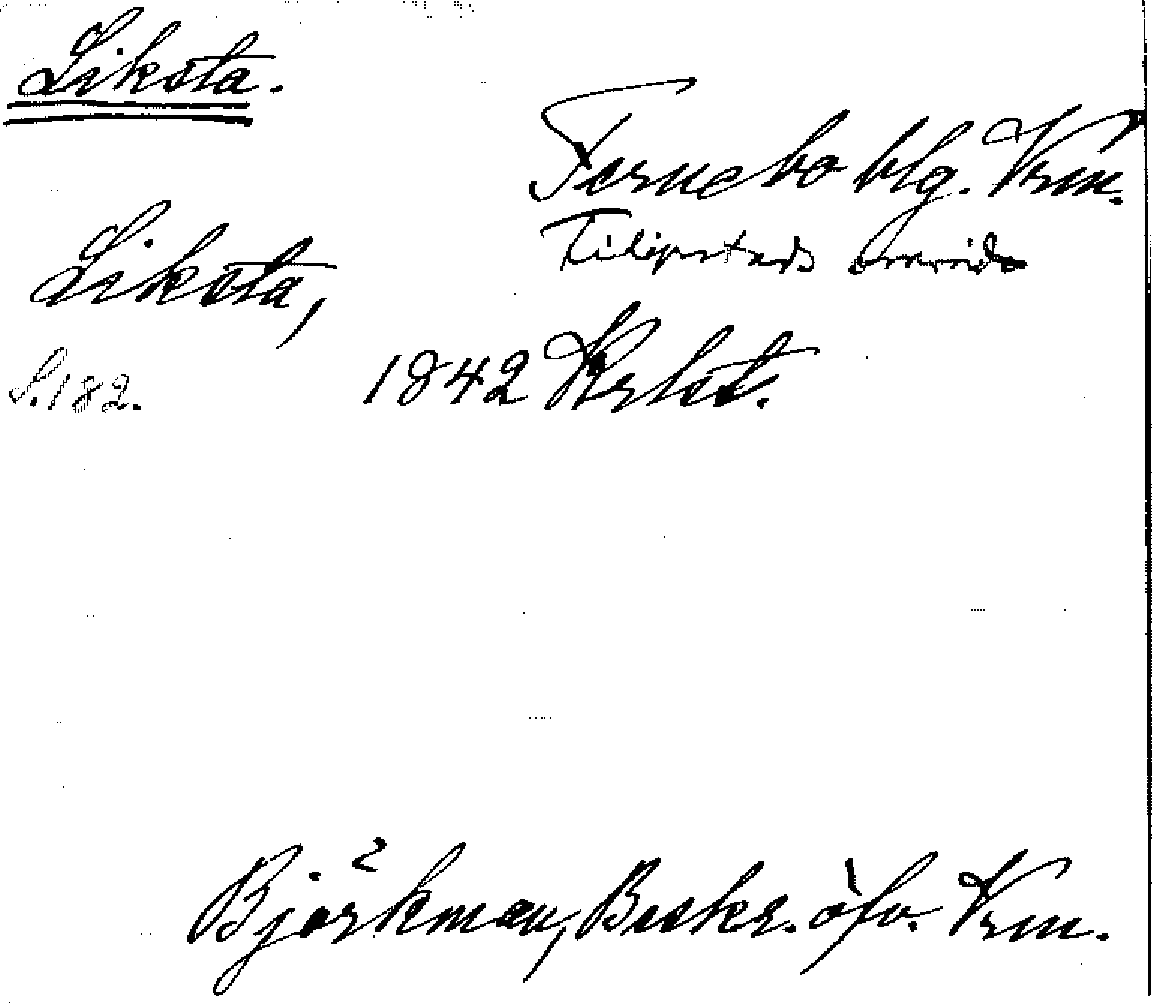 Liksta.
Fernebo blg. Vrm.
Filipstads område
Liksta,
S. 182. 1842 Krlst.
Björkman, Beskr. öfv. Vrm.